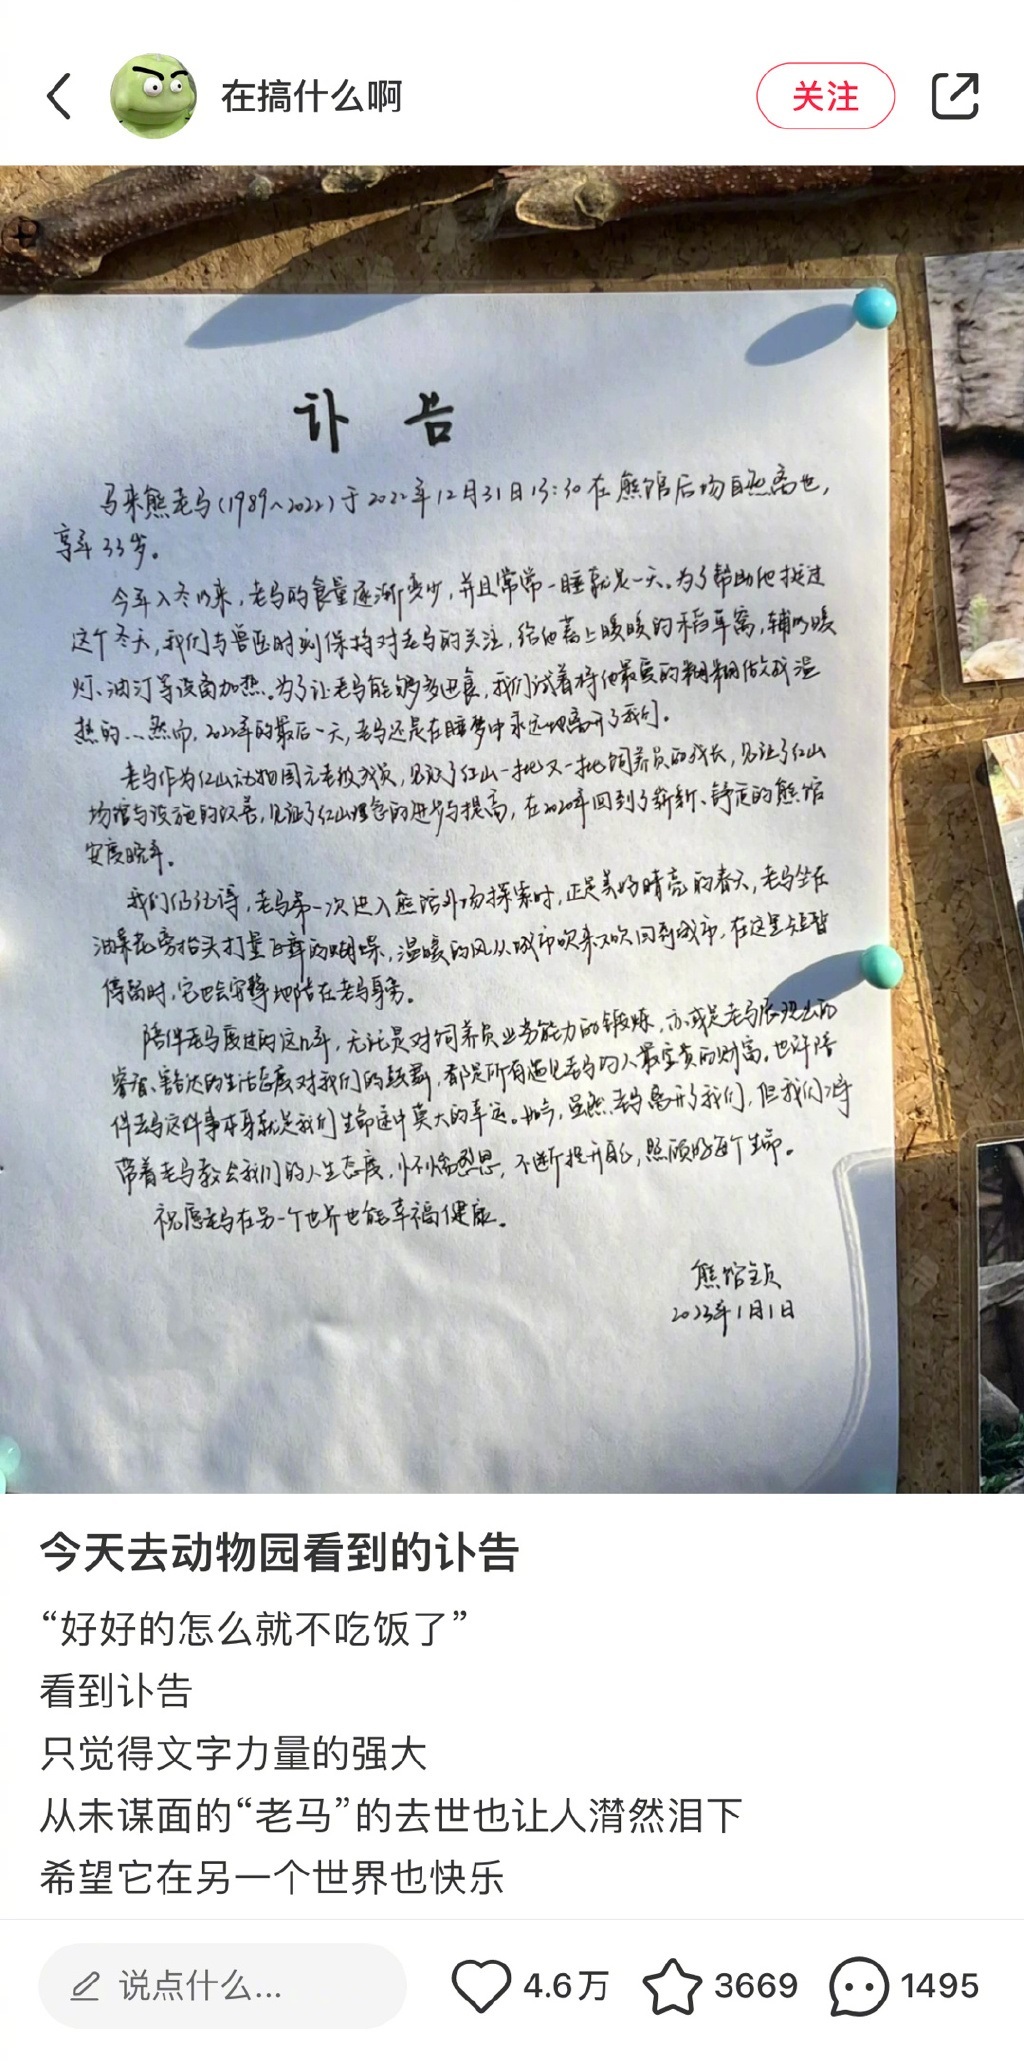 在搞什么啊
关注
讣 告
马来熊老马(1989~2022)于2022年12月31日13:30在熊馆后场自然离世，
享年33岁。
今年入冬以来，老马的食量逐渐变少，并且常常一睡就是一天。为了帮助他挺过
这个冬天，我们与兽医时刻保持对老马的关注，给他盖上暖暖的稻草窝，辅以暖
灯、油汀等设备加热。为了让老马能够多进食，我们试着将他最爱的糊糊做成温
热的…然而，2022年的最后一天，老马还是在睡梦中永远地离开了我们。
老马作为红山动物园元老级成员，见证了红山一批又一批饲养员的成长，见证了红山
场馆与设施的改善，见证了红山理念的进步与提高，在2020年回到了崭新、舒适的熊馆
安度晚年。
我们仍记得，老马第一次进入熊馆外场探索时，正是美好晴亮的春天，老马坐在
油菜花旁抬头打量飞舞的蝴蝶，温暖的风从城市吹来又吹回到城市，在这里短暂
停留时，它也会安静地陪在老马身旁。
陪伴老马度过的这几年，无论是对饲养员业务能力的锻炼，亦或是老马展现出的
睿智、豁达的生活态度对我们的鼓舞，都是所有遇见老马的人最宝贵的财富。也许陪
伴老马这件事本身就是我们生命途中莫大的幸运。如今，虽然老马离开了我们，但我们将
带着老马教会我们的人生态度，心怀感恩，不断提升自己，照顾好每个生命。
祝愿老马在另一个世界也能幸福健康。
熊馆全员
2023年1月1日
今天去动物园看到的讣告
“好好的怎么就不吃饭了”
看到讣告
只觉得文字力量的强大
从未谋面的“老马”的去世也让人潸然泪下
希望它在另一个世界也快乐
说点什么...
4.6万
3669
1495